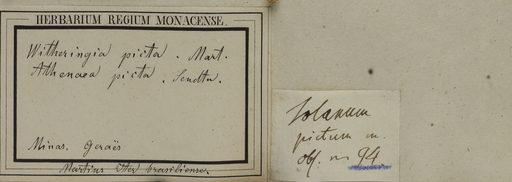 HERBARIUM REGIUM MONACENSE.
Witheringia picta. Mart.
Athenaea picta. Sendtn.
Minas. Geraës
Martius Iter brasiliense.
Solanum
pictum m.
obs. n. 94.